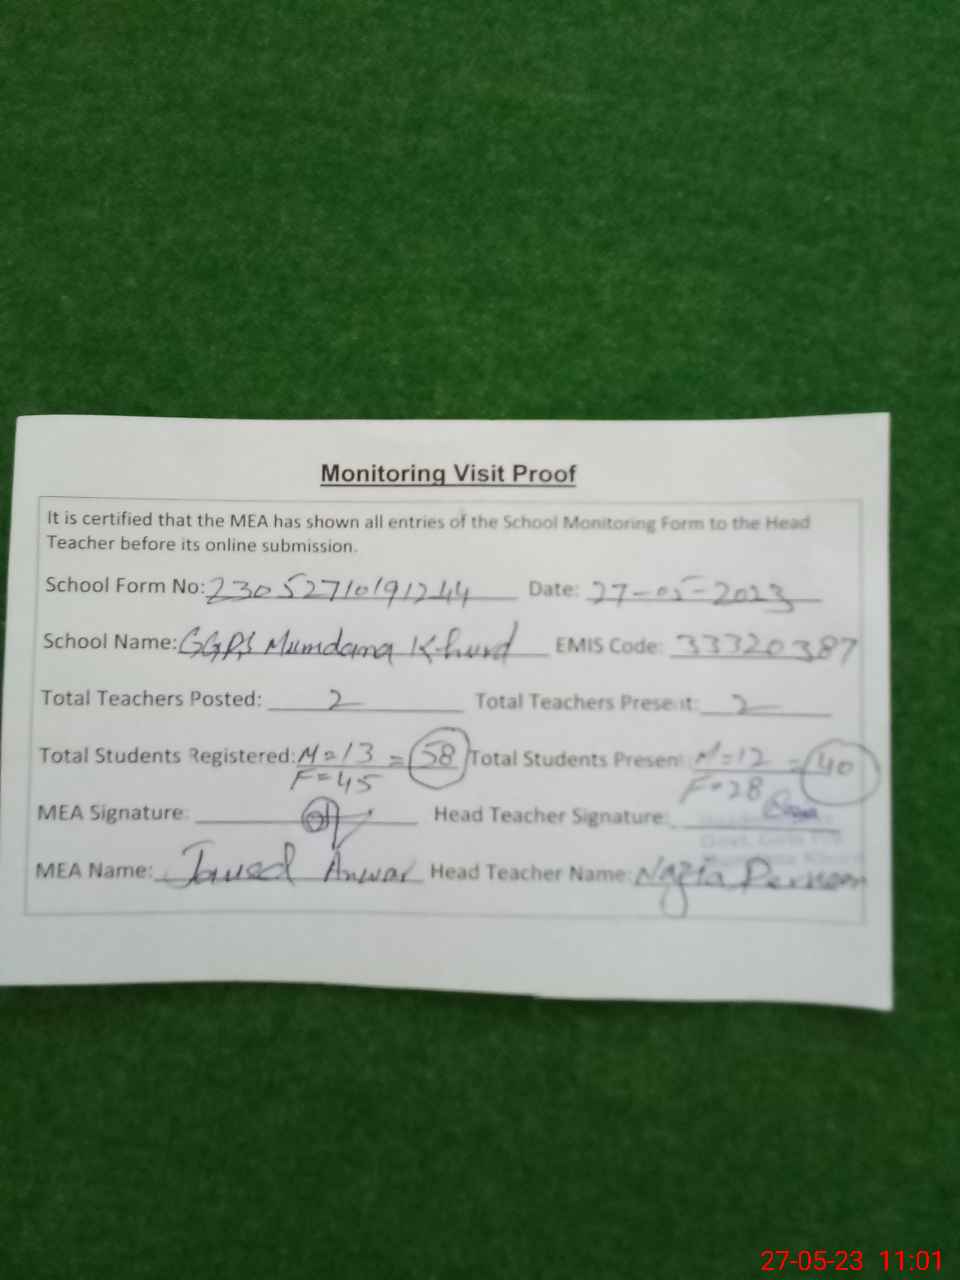 Monitoring Visit Proof
It is certified that the MEA has shown all entries of the School Monitoring Form to the Head
Teacher before its online submission.
School Form No: 23052710191244 Date: 27-05-2023
School Name: GGPS Mumdana Khurd EMIS Code: 33320387
Total Teachers Posted: 2 Total Teachers Present: 2
Total Students Registered: M=13 = 58 Total Students Present M=12 = 40
F=45 F=28
MEA Signature: Head Teacher Signature:
MEA Name: Javed Anwar Head Teacher Name: Nazia Perveen
27-05-23 11:01